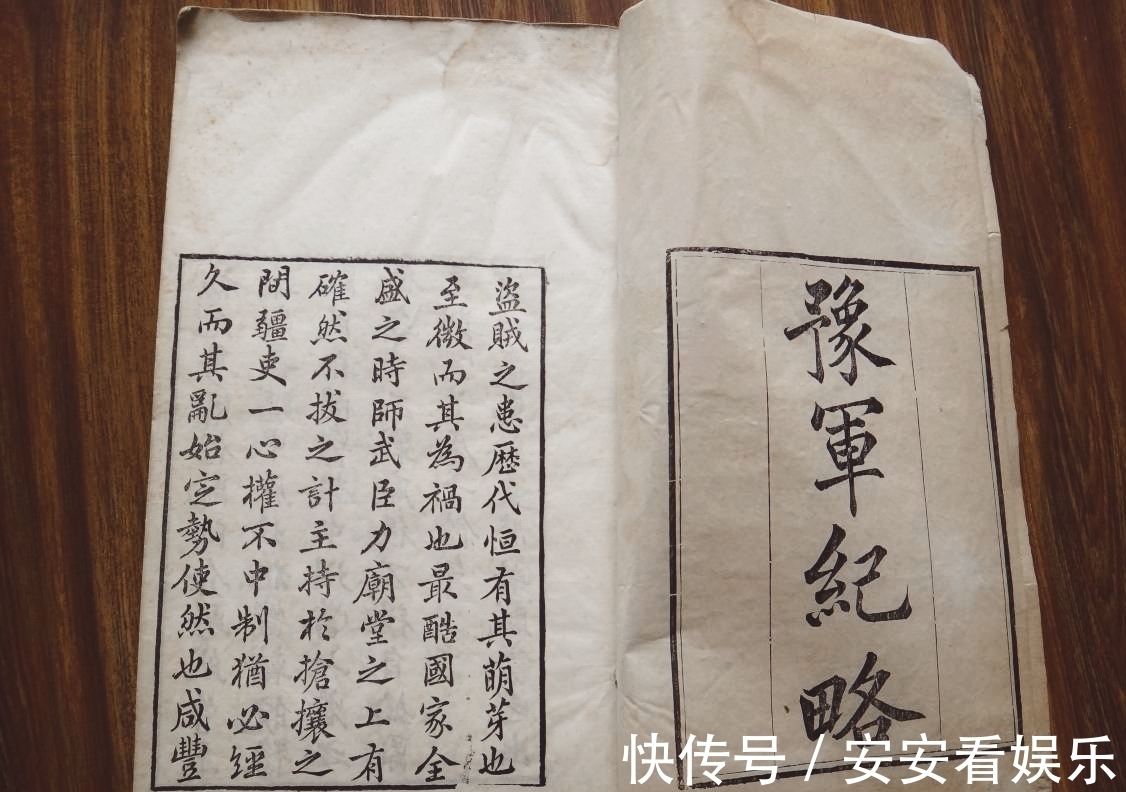 豫軍紀略
盜賊之患歷代恒有其萌芽也
至微而其為禍也最酷國家全
盛之時師武臣力廟堂之上有
確然不拔之計主持於搶攘之
間疆吏一心權不中制猶必經
久而其亂始定勢使然也咸豐
快传号 / 安安看娱乐